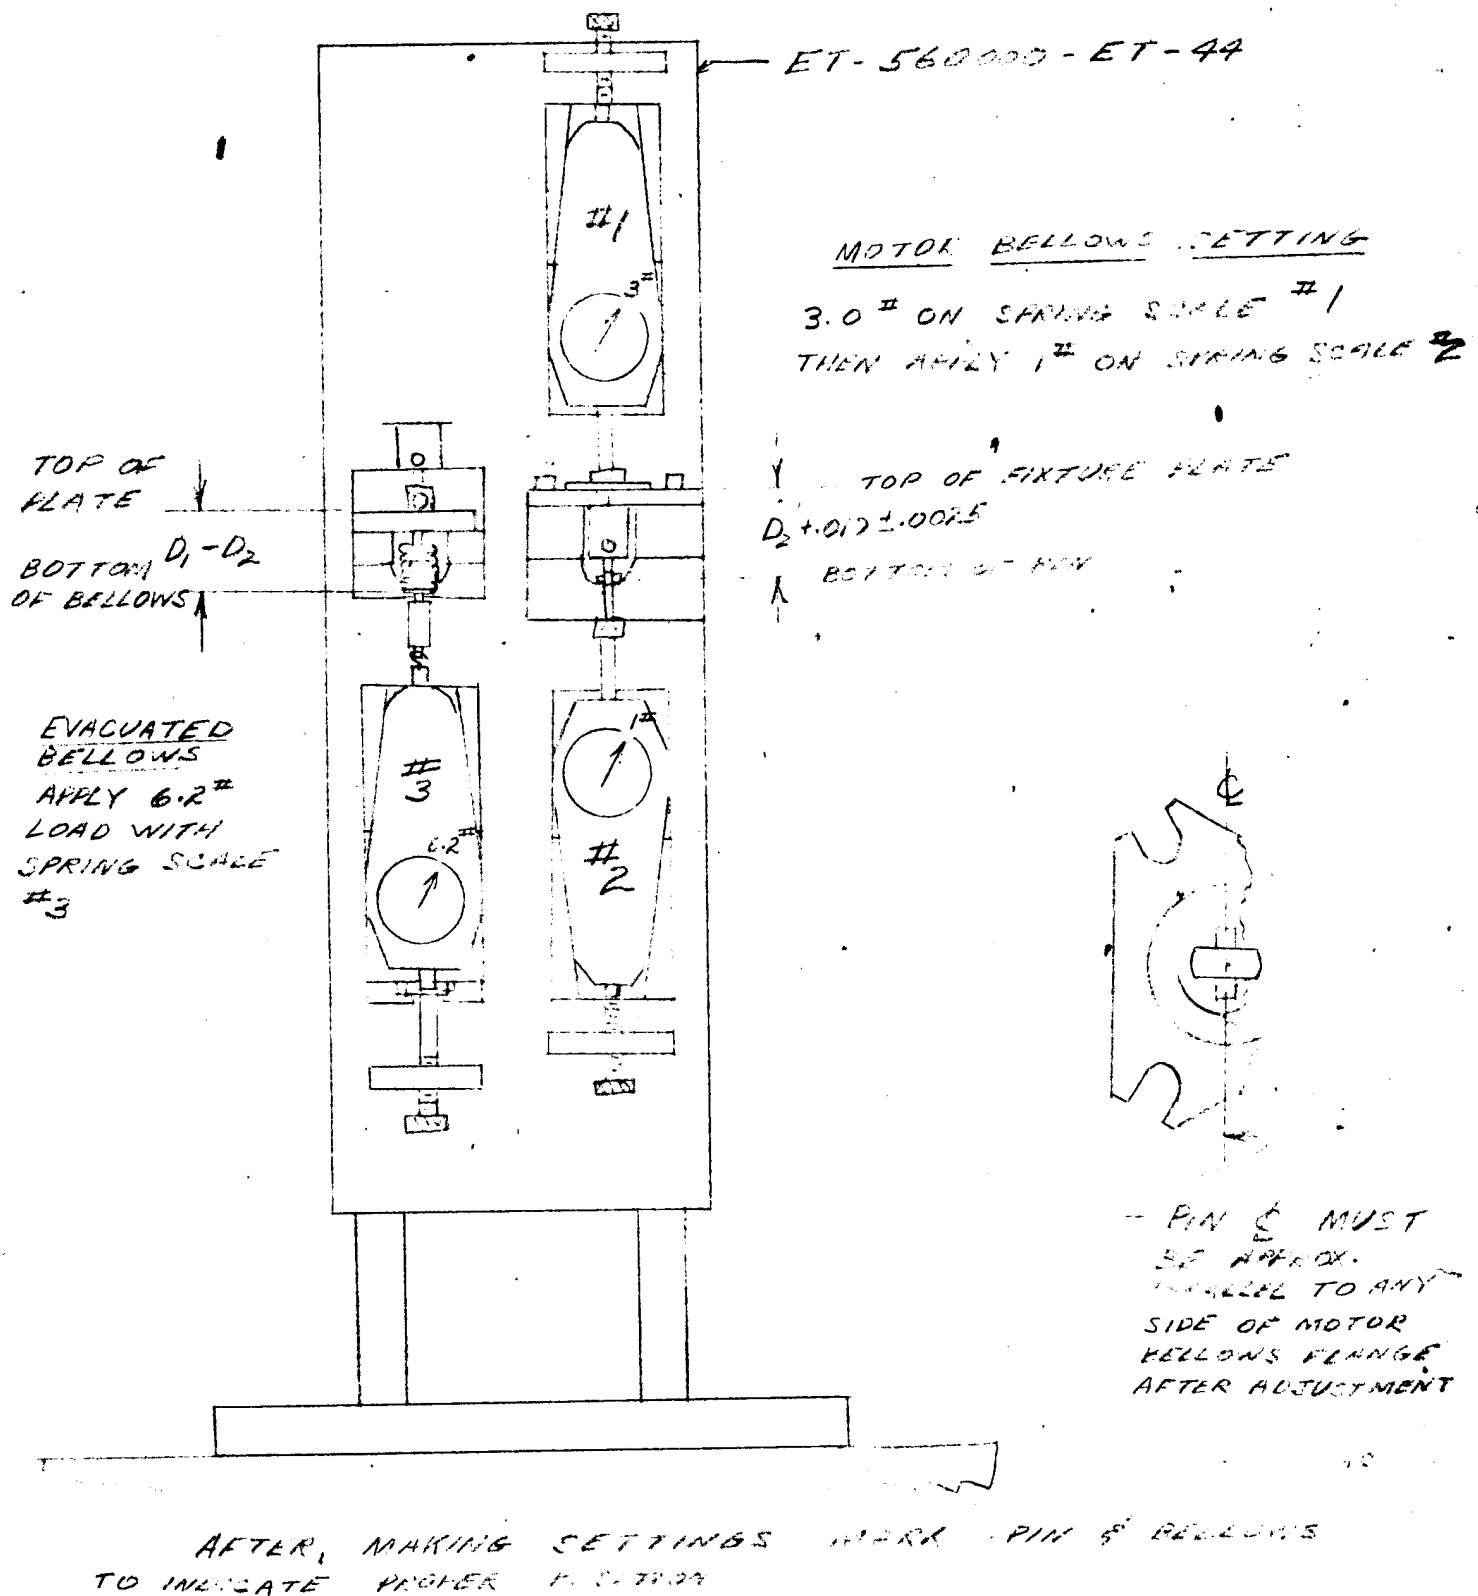 ET-560000-ET-44
#1
3#
MOTOR BELLOWS SETTING
3.0# ON SPRING SCALE #1
THEN APPLY 1# ON SPRING SCALE #2
TOP OF
PLATE
D1-D2
BOTTOM
OF BELLOWS
TOP OF FIXTURE PLATE
D2+.017±.0025
BOTTOM OF PIN
EVACUATED
BELLOWS
APPLY 6.2#
LOAD WITH
SPRING SCALE
#3
#3
6.2#
1#
#2
℄
PIN ℄ MUST
BE APPROX.
PARALLEL TO ANY
SIDE OF MOTOR
BELLOWS FLANGE
AFTER ADJUSTMENT
AFTER, MAKING SETTINGS MARK PIN & BELLOWS
TO INDICATE PROPER POSITION